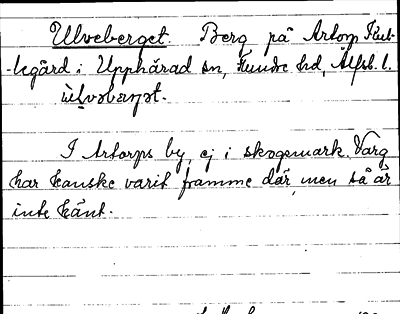 Ulveberget. Berg på Artorp Kub-
-legård i Upphärad sn, Flundre hd, Älfsb. l.
I Artorps by, ej i skogsmark. Varg
har kanske varit framme där, men så är
inte känt.